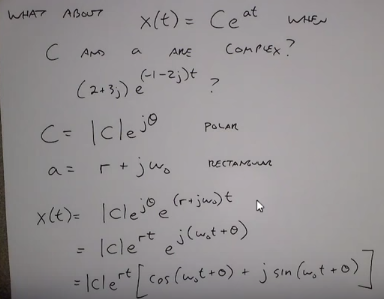 WHAT ABOUT x(t) = Ce^{at} WHEN
C AND a ARE COMPLEX?
(2+3j) e^{(-1-2j)t} ?
C = |C|e^{jθ} POLAR
a = r + jω₀ RECTANGULAR
x(t) = |C|e^{jθ} e^{(r+jω₀)t}
= |C|e^{rt} e^{j(ω₀t+θ)}
= |C|e^{rt} [cos(ω₀t+θ) + j sin(ω₀t+θ)]